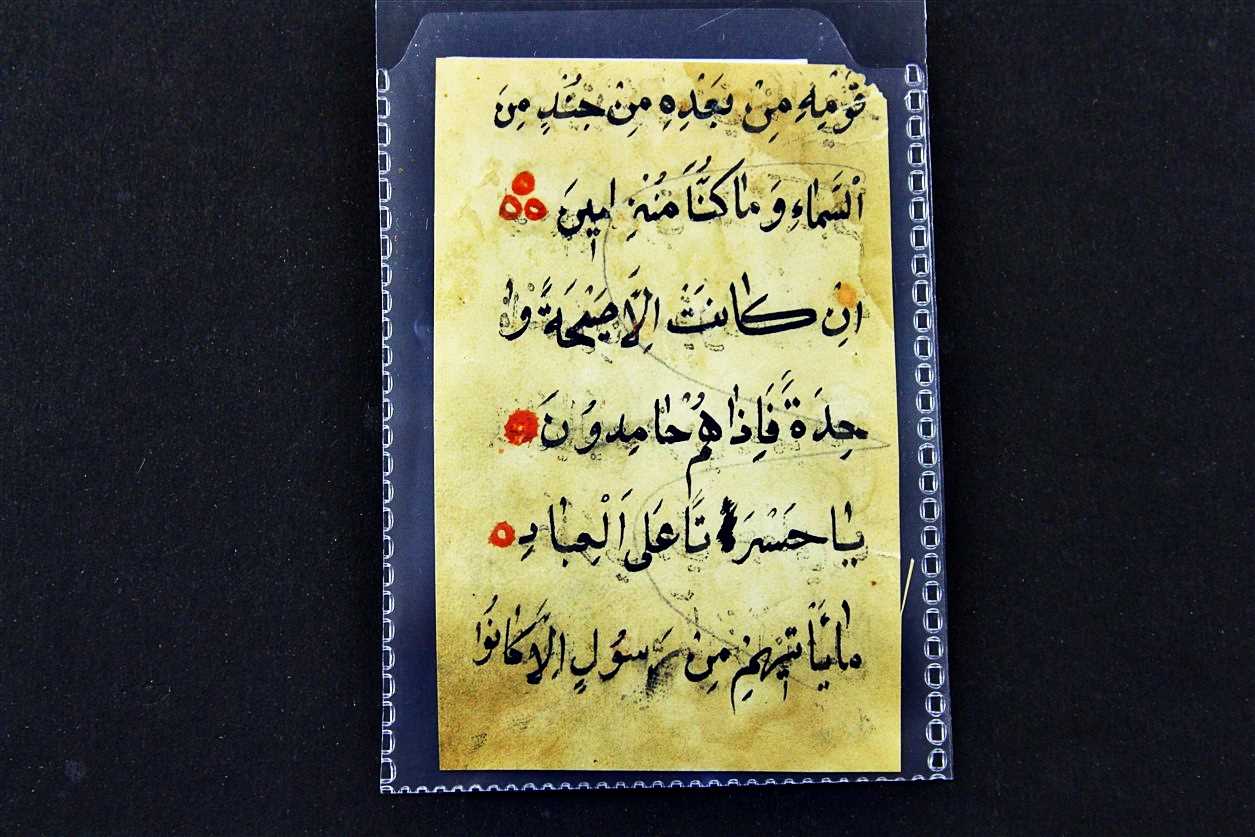 قَوْمِهِ مِنْ بَعْدِهِ مِنْ جُنْدٍ مِنَ
اَلسَّمَاءِ وَمَا كُنَّا مُنْزِلِينَ
اِنْ كَانَتْ اِلَّا صَيْحَةً وَا
حِدَةً فَاِذَا هُمْ خَامِدُونَ
يَا حَسْرَتًا عَلَى الْعِبَادِ
مَا يَأْتِيهِمْ مِنْ رَسُولٍ اِلَّا كَانُوا